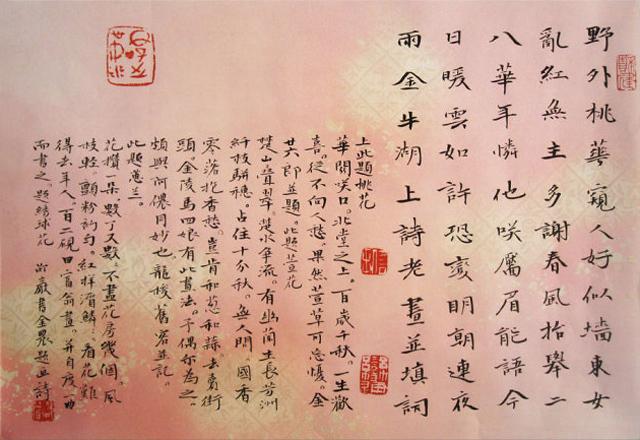 野外桃華窺人好似墻東女
亂紅無主多謝春風抬舉二
八華年憐他咲靨眉能語今
日暖雲如許恐變明朝連夜
雨金牛湖上詩老畫並填詞
上此題桃花
華開咲口。北堂之上。百歲千秋。一生歡
喜。從不向人愁。果然萱草可忘憂。金
即並題。此題萱花
楚山疊翠。楚水爭流。有幽蘭生長芳洲
纤枝駢穗。占住十分秋。無人問。國香
零落抱香愁。豈肯和蔥和蒜去賣街
頭。金陵馬四娘有此畫法。予偶爾為之。
頗與阿儂同妙也龍梭舊客並記。
此題蕙蘭。
花攢一朵。數了又數。不盡花房幾個。風
枝輕。顫粉勻。紅樣鱗。看花難
得去年人。百二硯田富翁畫。并自度一曲
而書之。題綉球花 書金農題畫詩